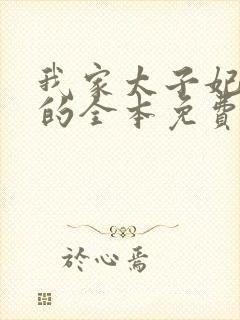 我家太子妃
的全本免費
於心焉